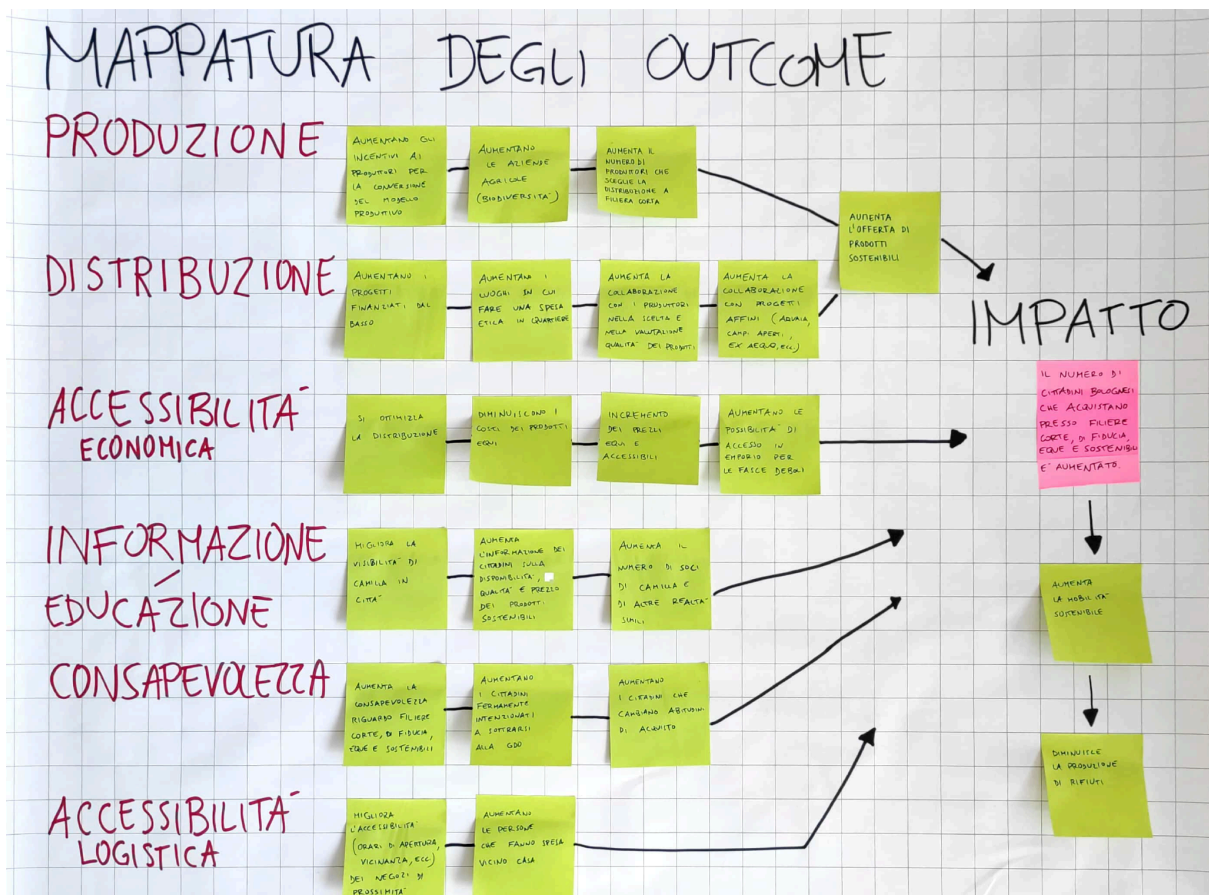 MAPPATURA DEGLI OUTCOME
PRODUZIONE
AUMENTANO GLI
INCENTIVI AI
PRODUTTORI PER
LA CONVERSIONE
DEL MODELLO
PRODUTTIVO
AUMENTANO
LE AZIENDE
AGRICOLE
(BIODIVERSITA')
AUMENTA IL
NUMERO DI
PRODUTTORI CHE
SCEGLIE LA
DISTRIBUZIONE A
FILIERA CORTA
AUMENTA
L'OFFERTA DI
PRODOTTI
SOSTENIBILI
DISTRIBUZIONE
AUMENTANO I
PROGETTI
FINANZIATI DAL
BASSO
AUMENTANO I
LUOGHI IN CUI
FARE UNA SPESA
ETICA IN QUARTIERE
AUMENTA LA
COLLABORAZIONE
CON I PRODUTTORI
NELLA SCELTA E
NELLA VALUTAZIONE
QUALITA' DEI PRODOTTI
AUMENTA LA
COLLABORAZIONE
CON PROGETTI
AFFINI (ARVAIA,
CAMPI APERTI,
EX AEQUO, ECC.)
IMPATTO
IL NUMERO DI
CITTADINI BOLOGNESI
CHE ACQUISTANO
PRESSO FILIERE
CORTE, DI FIDUCIA,
EQUE E SOSTENIBILI
E' AUMENTATO.
ACCESSIBILITA'
ECONOMICA
SI OTTIMIZZA
LA DISTRIBUZIONE
DIMINUISCONO I
COSTI DEI PRODOTTI
EQUI
INCREMENTO
DEI PREZZI
EQUI E
ACCESSIBILI
AUMENTANO LE
POSSIBILITA' DI
ACCESSO IN
EMPORIO PER
LE FASCE DEBOLI
INFORMAZIONE
/
EDUCAZIONE
MIGLIORA LA
VISIBILITA' DI
CAMILLA IN
CITTA'
AUMENTA
L'INFORMAZIONE DEI
CITTADINI SULLA
DISPONIBILITA',
QUALITA' E PREZZO
DEI PRODOTTI
SOSTENIBILI
AUMENTA IL
NUMERO DI SOCI
DI CAMILLA E
DI ALTRE REALTA'
SIMILI
AUMENTA
LA MOBILITA'
SOSTENIBILE
CONSAPEVOLEZZA
AUMENTA LA
CONSAPEVOLEZZA
RIGUARDO FILIERE
CORTE, DI FIDUCIA,
EQUE E SOSTENIBILI
AUMENTANO
I CITTADINI
FERMAMENTE
INTENZIONATI
A SOTTRARSI
ALLA GDO
AUMENTANO
I CITTADINI CHE
CAMBIANO ABITUDINI
DI ACQUISTO
DIMINUISCE
LA PRODUZIONE
DI RIFIUTI
ACCESSIBILITA'
LOGISTICA
MIGLIORA
L'ACCESSIBILITA'
(ORARI DI APERTURA,
VICINANZA, ECC)
DEI NEGOZI DI
PROSSIMITA'
AUMENTANO
LE PERSONE
CHE FANNO SPESA
VICINO CASA